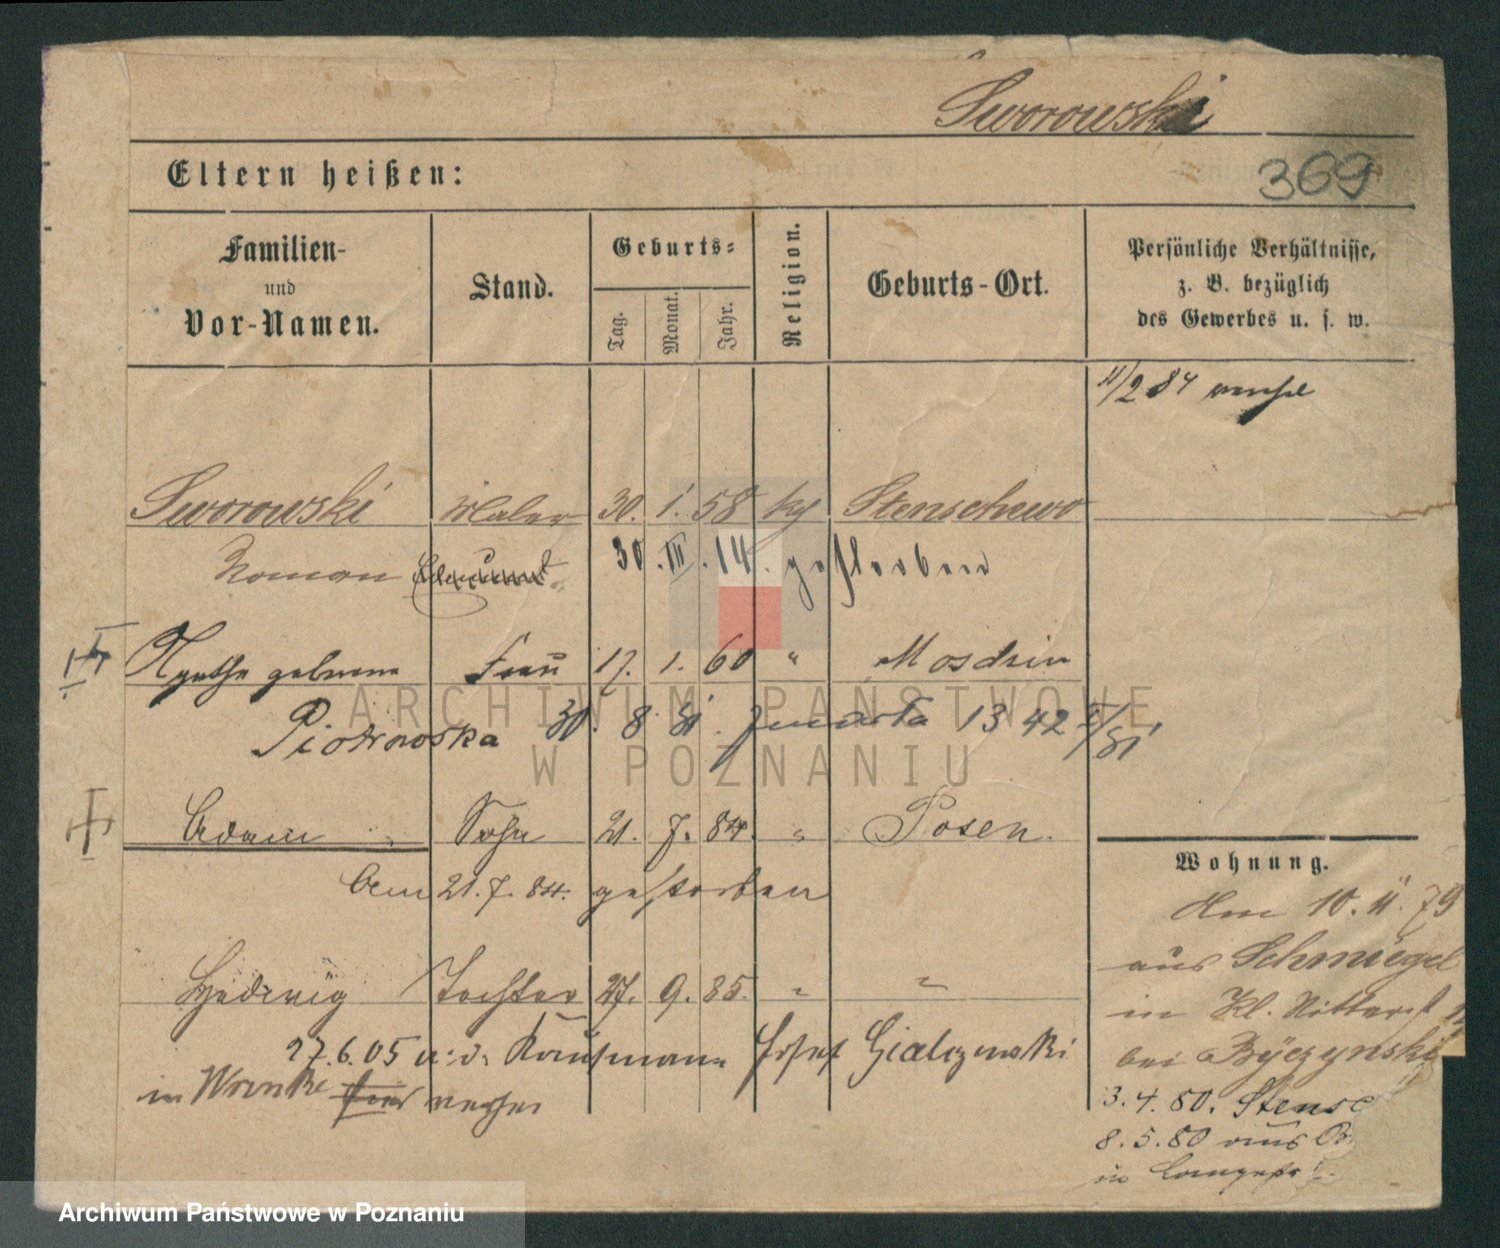 Sworowski
369
Eltern heißen:
Familien- und Vor-Namen.
Stand.
Geburts=
Tag.
Monat.
Jahr.
Religion.
Geburts-Ort.
Persönliche Verhältnisse,
z. B. bezüglich
des Gewerbes u. s. w.
11/2 84
Sworowski Maler 30. 1. 58 kg Stenschewo
Roman 30. III. 14. gestorben
Agathe geborene Frau 17. 1. 60 " Moschin
Piotrowska 30. 8 81. 13 42 81
Adam Sohn 21. 7. 84. " Posen.
Am 21. 7. 84. gestorben
Hedwig Tochter 27. 9. 85. " "
27.6.05 a. d. Kaufmann Josef Gialczynski
in Wronke hier verh
Wohnung.
Am 10. 11. 79
aus Schmiegel
in Kl. Ritterst
bei Byczynski
3. 4. 80. Stensc
8. 5. 80 aus
in Langestr
ARCHIWUM PAŃSTWOWE
W POZNANIU
Archiwum Państwowe w Poznaniu